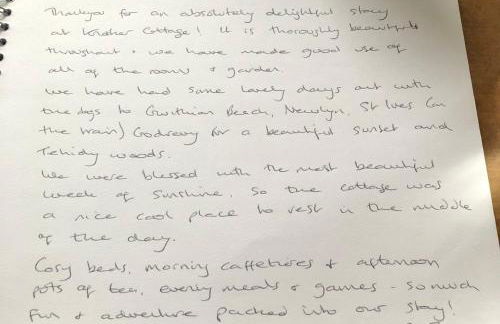 Thankyou for an absolutely delightful stay
at Cottage! It is thoroughly beautiful
throughout + we have made good use of
all of the rooms + garden.
We have had some lovely days out with
the dogs to Gwithian Beach, Newlyn, St Ives (on
the train) Godrevy for a beautiful sunset and
Tehidy woods.
We were blessed with the most beautiful
week of sunshine. So the cottage was
a nice cool place to rest in the middle
of the day.
Cosy beds, morning caffetieres + afternoon
pots of tea, evening meals + games - so much
fun + adventure packed into our stay!